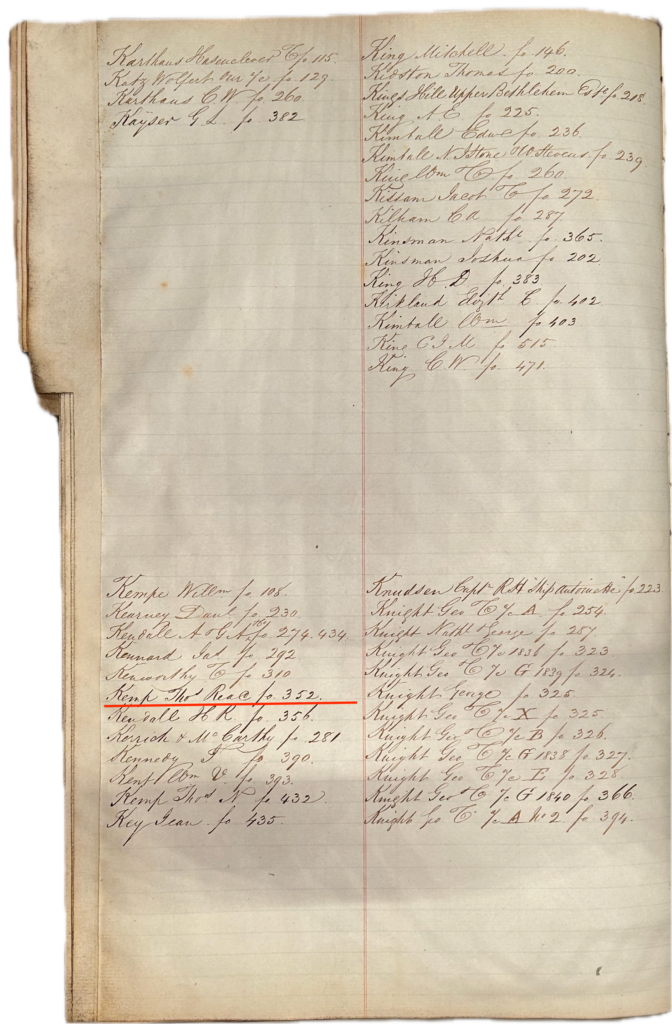 Karthaus Hasenclever & Co fo 115.
Katz Wolfert our %c fo. 129
Karthaus C. W fo 260
Kayser G L. fo 382
Kempe Willm fo 108.
Kearney Danl fo 230
Kendall A & G. A. fo 274. 434
Kennard Jas fo 292
Kenworthy & Co fo 310.
Kemp Thos Reac fo 352.
Kendall H R. fo. 356.
Kerrich & McCarthy fo 281
Kennedy fo 390.
Kenf Wm fo 393.
Kemp Thos N. fo 432.
Key Jean. fo 435.
King Mitchell. fo 146.
Kibston Thomas fo 200.
Kings Hill Upper Bethlehem Este fo 218.
King A E. fo 225.
Kimball Edwd fo. 236.
Kimball N. J Stone Stevens fo. 239
King Wm & Co fo 260.
Kissam Jacot & Co fo 272.
Kilham C A fo 287
Kinsman Nathl fo. 365.
Kinsman Joshua fo 202
King H. D. fo 383
Kirkland & Co fo. 402
Kimball Wm fo 403
King C J. M fo 515
King C. W. fo. 471.
Knudsen Capt R H "Ship Antoinette" fo 223
Knight Geo & Co %c A fo 254.
Knight Nathl George fo 257
Knight Geo & Co %c 1836 fo 323
Knight Geo & Co %c G 1839 fo 324.
Knight George fo 325.
Knight Geo & Co %c X fo 325.
Knight Geo & Co %c B fo 326.
Knight Geo & Co %c G 1838 fo 327.
Knight Geo & Co %c E fo 328
Knight Geo & Co %c G 1840 fo 366.
Knight Geo & Co %c A No 2 fo 394.